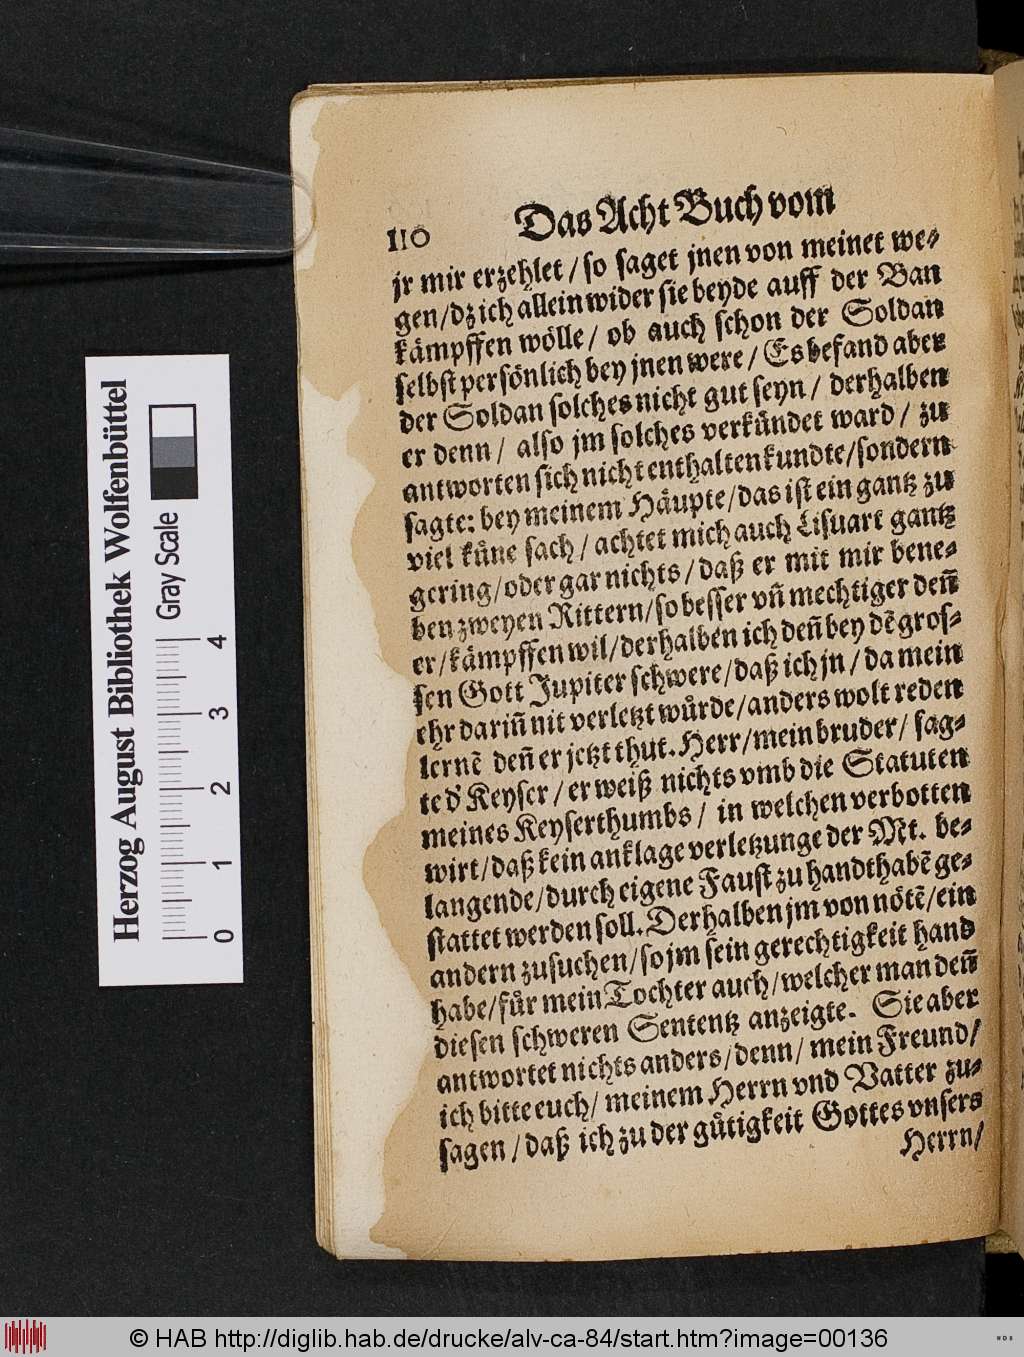 110 Das Acht Buch vom
jr mir erzehlet / so saget jnen von meinet we-
gen / dz ich allein wider sie beyde auff der Ban
kåmpffen wölle / ob auch schon der Soldan
selbst persönlich bey jnen were / Es befand aber
der Soldan solches nicht gut seyn / derhalben
er denn / also jm solches verkůndet ward / zu
antworten sich nicht enthalten kundte / sondern
sagte: bey meinem Håupte / das ist ein gantz zu
viel kůne sach / achtet mich auch Lisuart gantz
gering / oder gar nichts / daß er mit mir bene-
ben zweyen Rittern / so besser vñ mechtiger deñ
er / kåmpffen wil / derhalben ich deñ bey dē gros-
sen Gott Jupiter schwere / daß ich jn / da mein
ehr dariñ nit verletzt wůrde / anders wolt reden
lernē deñ er jetzt thut. Herr / mein bruder / sag-
te d' Keyser / er weiß nichts vmb die Statuten
meines Keyserthumbs / in welchen verbotten
wirt / daß kein anklage verletzunge der Mt. be-
langende / durch eigene Faust zu handthabē ge-
stattet werden soll. Derhalben jm von nötē / ein
andern zusuchen / so jm sein gerechtigkeit hand
habe / fůr mein Tochter auch / welcher man deñ
diesen schweren Sententz anzeigte. Sie aber
antwortet nichts anders / denn / mein Freund /
ich bitte euch / meinem Herrn vnd Vatter zu-
sagen / daß ich zu der gůtigkeit Gottes vnsers
Herrn /
Herzog August Bibliothek Wolfenbüttel
Gray Scale
0 1 2 3 4
© HAB http://diglib.hab.de/drucke/alv-ca-84/start.htm?image=00136